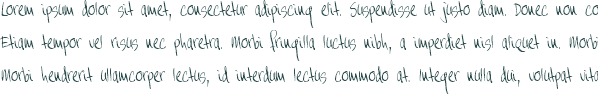 Lorem ipsum dolor sit amet, consectetur adipiscing elit. Suspendisse ut justo diam. Donec non co
Etiam tempor vel risus nec pharetra. Morbi fringilla luctus nibh, a imperdiet nisl aliquet in. Morbi
Morbi hendrerit ullamcorper lectus, id interdum lectus commodo at. Integer nulla dui, volutpat vita